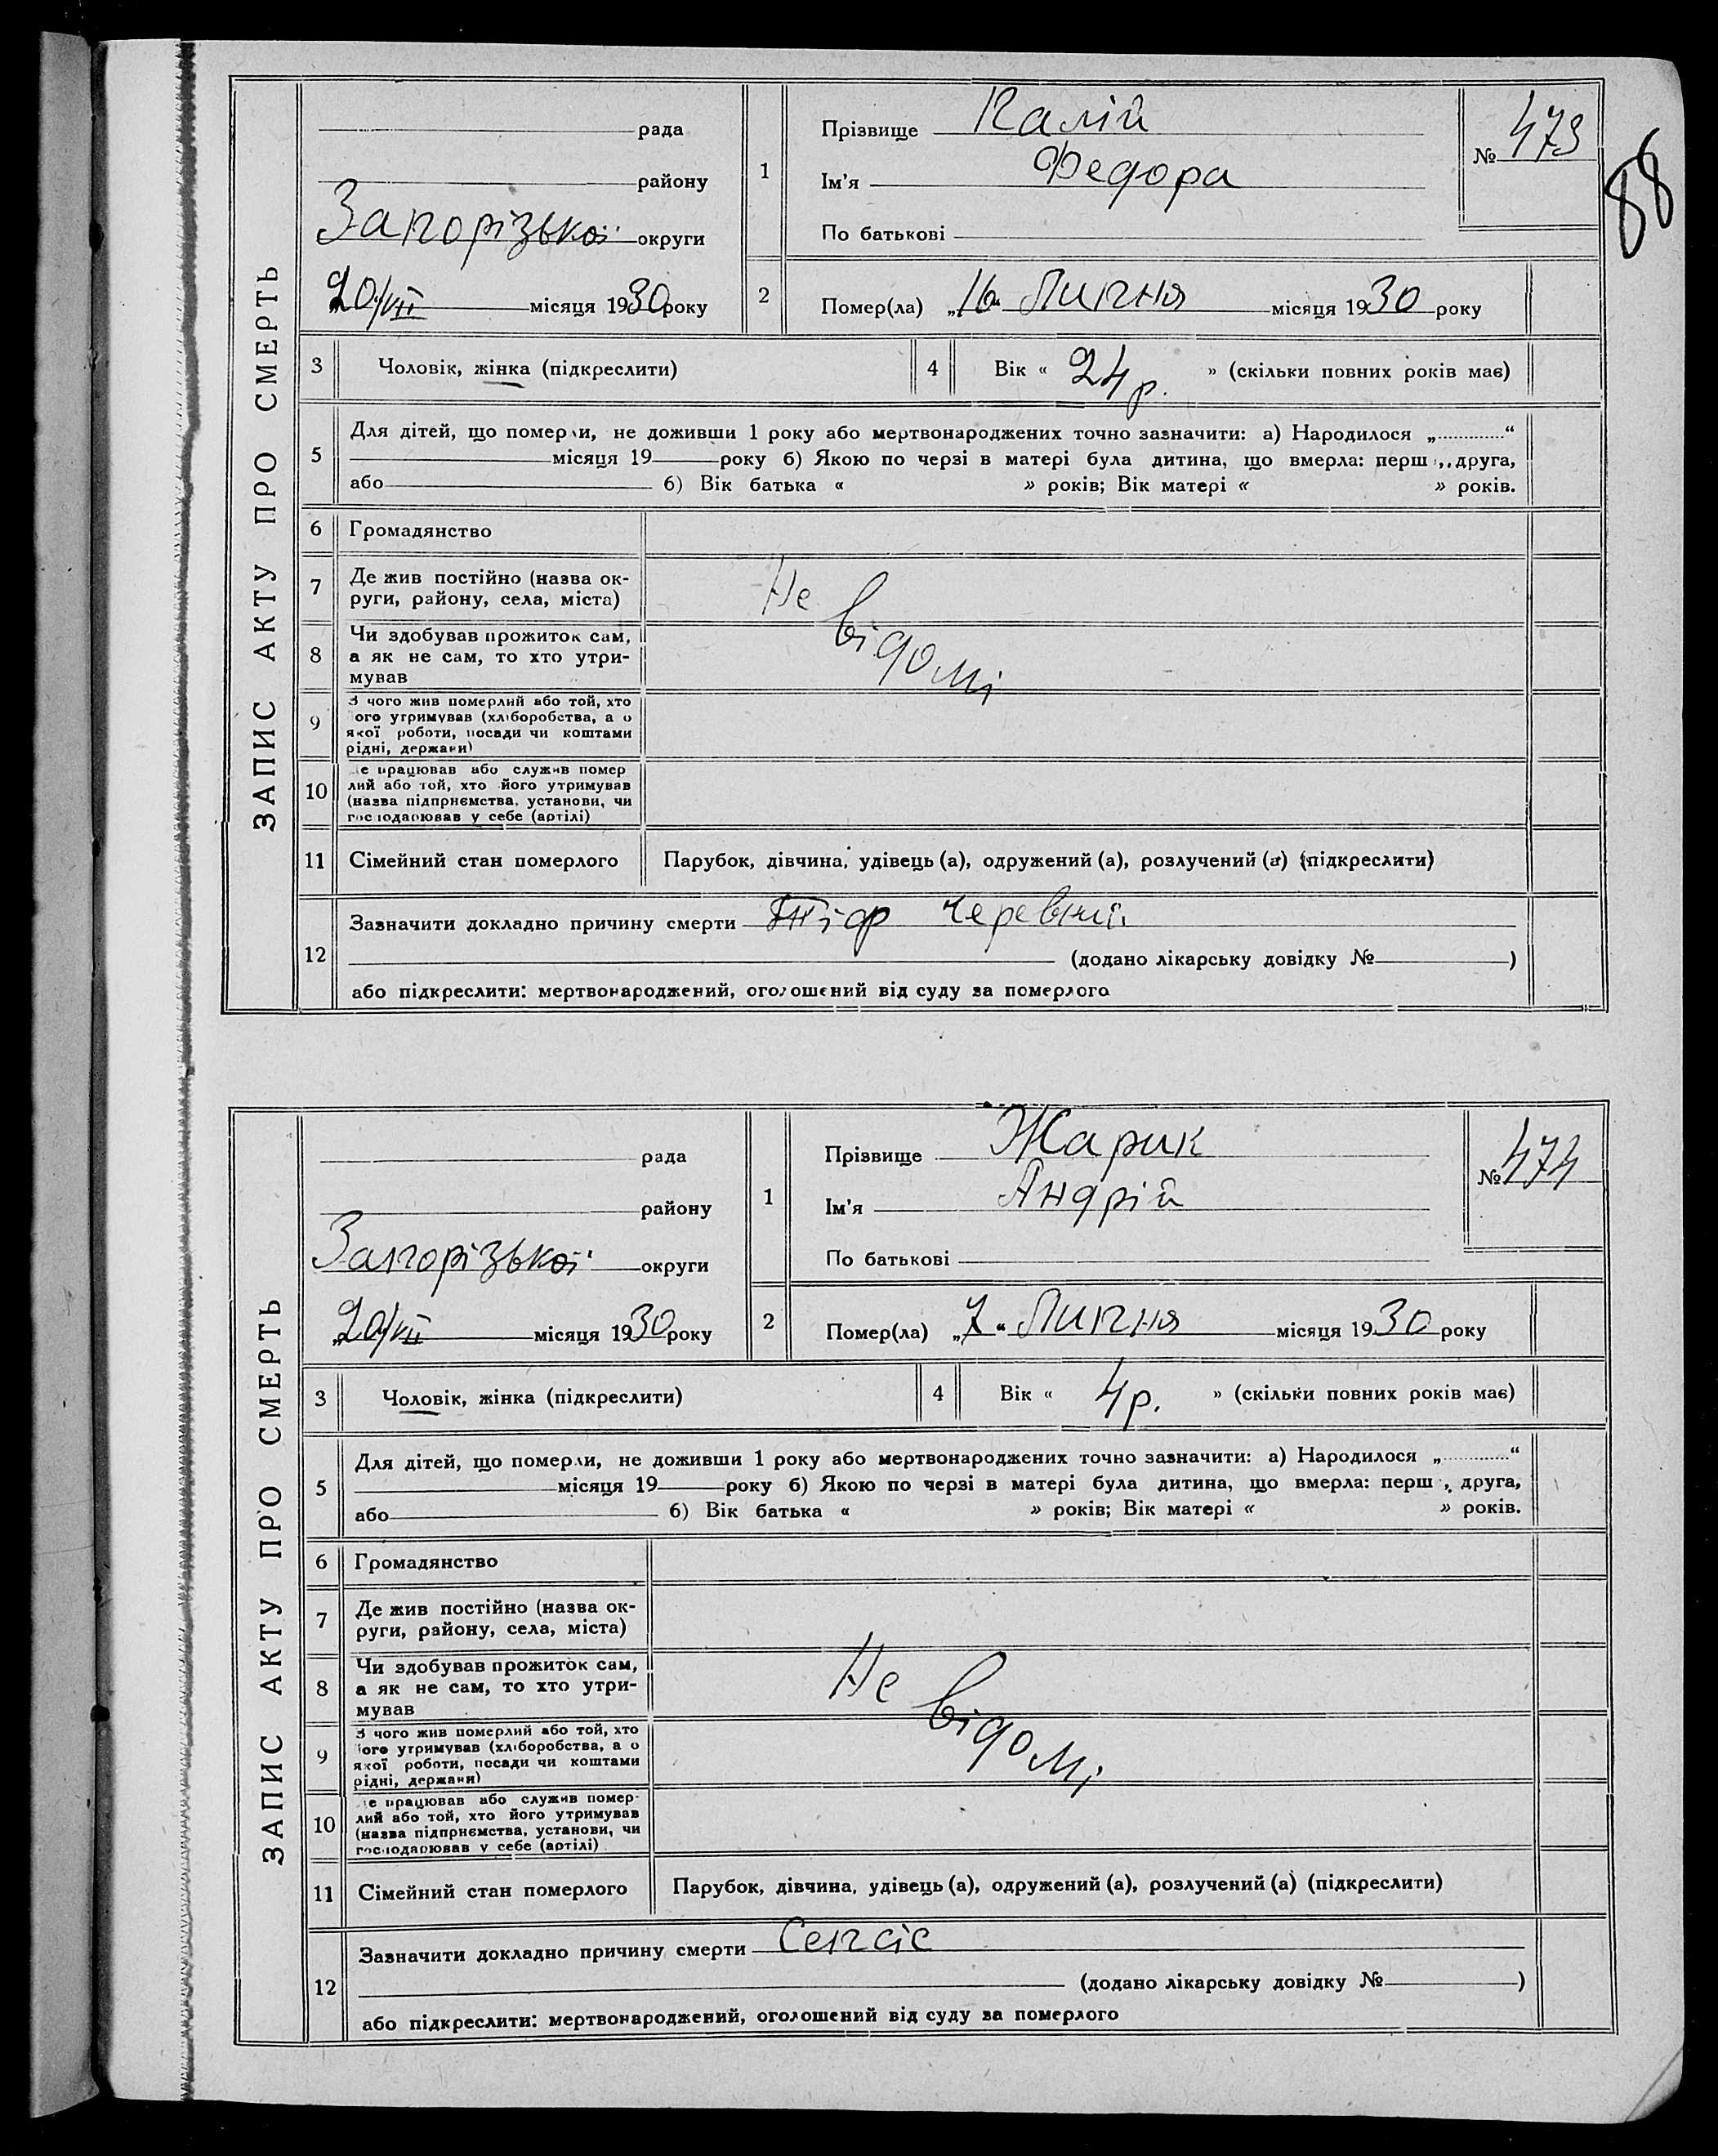 88
ЗАПИС АКТУ ПРО СМЕРТЬ
рада
району
Запорізької округи
20/VII місяця 1930 року
1
Прізвище Калій
Ім'я Федора
По батькові
№ 473
2
Помер(ла) „16“ Липня місяця 1930 року
3 Чоловік, жінка (підкреслити)
4 Вік « 24 р. » (скільки повних років має)
5
Для дітей, що померли, не доживши 1 року або мертвонароджених точно зазначити: а) Народилося „ “
місяця 19 року б) Якою по черзі в матері була дитина, що вмерла: перш , друга,
або б) Вік батька « » років; Вік матері « » років.
6 Громадянство
7 Де жив постійно (назва ок-
руги, району, села, міста)
8 Чи здобував прожиток сам,
а як не сам, то хто утри-
мував
9 З чого жив померлий або той, хто
ого утримував (хліборобства, а о
якої роботи, посади чи коштами
рідні, держави)
10 е працював або служив помер
лий або той, хто його утримував
(назва підприємства, установи, чи
господарював у себе (артілі)
Не відомі
11 Сімейний стан померлого Парубок, дівчина, удівець (а), одружений (а), розлучений (а) (підкреслити)
12
Зазначити докладно причину смерти Тіф черевний
(додано лікарську довідку № )
або підкреслити: мертвонароджений, оголошений від суду за померлого
ЗАПИС АКТУ ПРО СМЕРТЬ
рада
району
Запорізької округи
„20/VII місяця 1930 року
1
Прізвище Жарик
Ім'я Андрій
По батькові
№ 474
2
Помер(ла) „7“ Липня місяця 1930 року
3 Чоловік, жінка (підкреслити)
4 Вік « 4 р. » (скільки повних років має)
5
Для дітей, що померли, не доживши 1 року або мертвонароджених точно зазначити: а) Народилося „ “
місяця 19 року б) Якою по черзі в матері була дитина, що вмерла: перш , друга,
або б) Вік батька « » років; Вік матері « » років.
6 Громадянство
7 Де жив постійно (назва ок-
руги, району, села, міста)
8 Чи здобував прожиток сам,
а як не сам, то хто утри-
мував
9 З чого жив померлий або той, хто
ого утримував (хліборобства, а о
якої роботи, посади чи коштами
рідні, держави)
10 е працював або служив помер-
лий або той, хто його утримував
(назва підприємства, установи, чи
господарював у себе (артілі)
Не відомі
11 Сімейний стан померлого Парубок, дівчина, удівець (а), одружений (а), розлучений (а) (підкреслити)
12
Зазначити докладно причину смерти Сепсіс
(додано лікарську довідку № )
або підкреслити: мертвонароджений, оголошений від суду за померлого